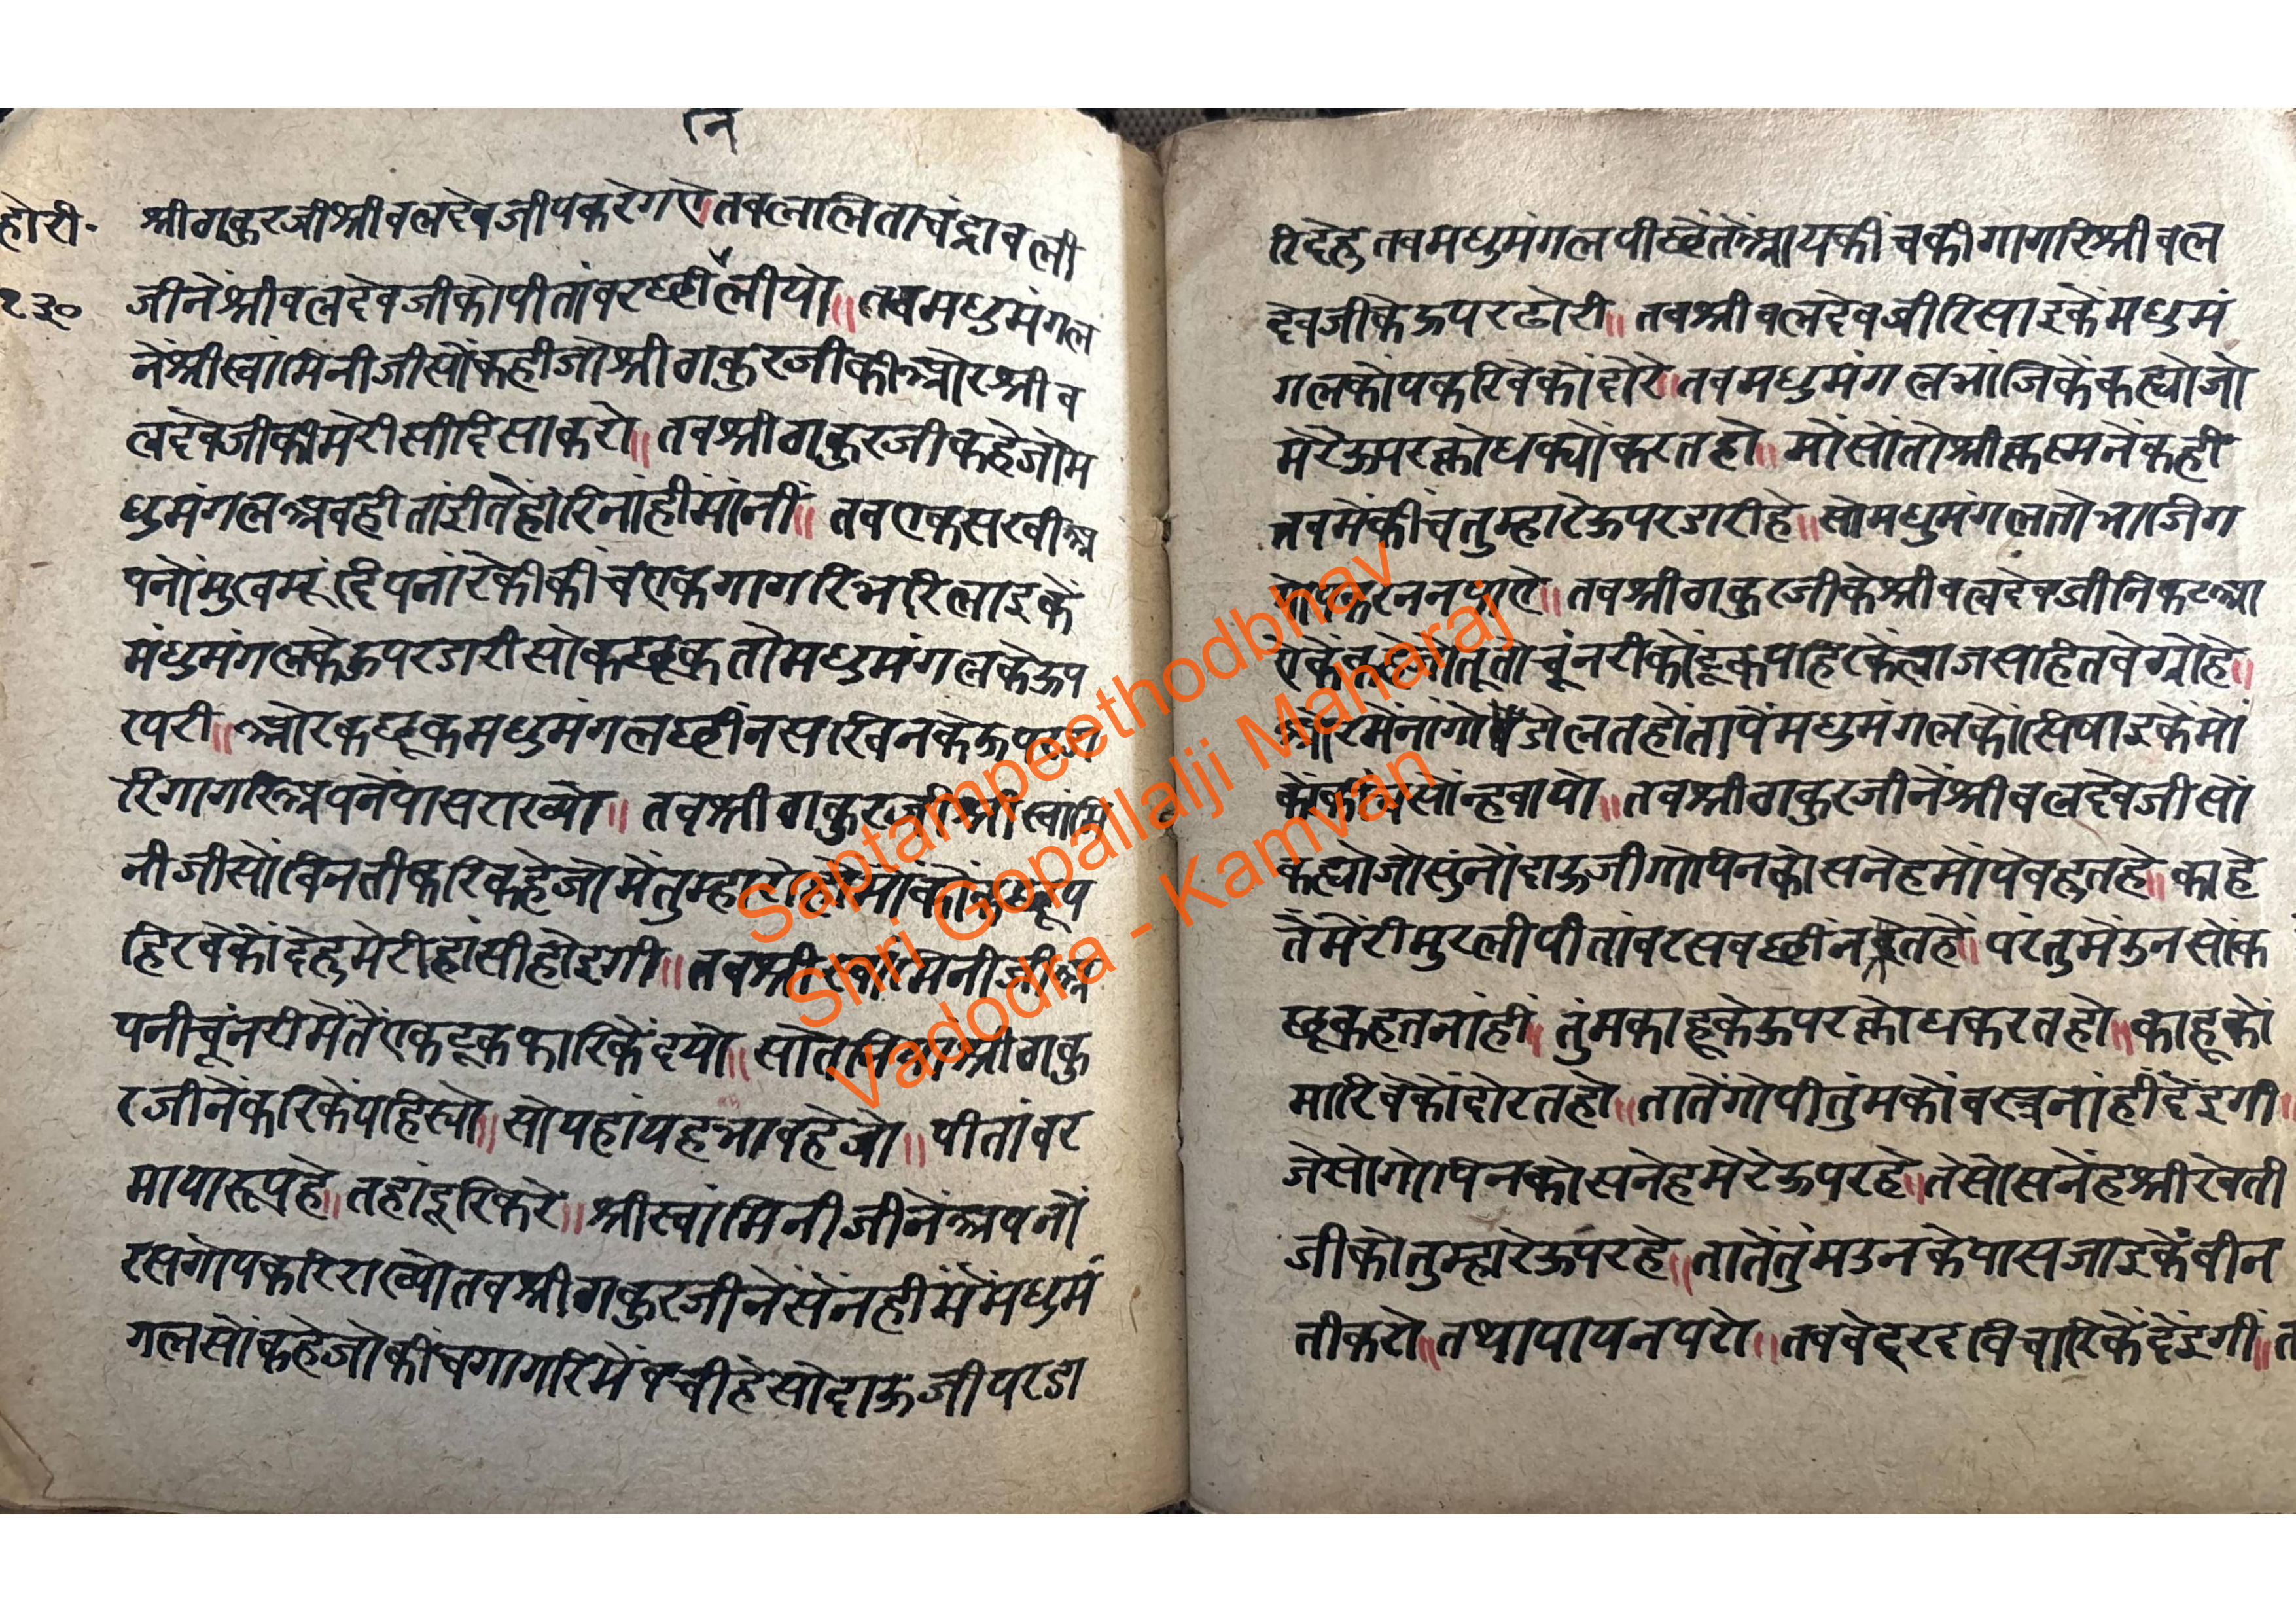 होरी॰
२३०
न
श्रीठाकुरजीश्रीबलदेवजीपकरेगऐ।तबलालिताचंद्रावली
जीनेंश्रीबलदेवजीकोपीतांबरछीलीयो॥तबमधुमंगल
नेंश्रीस्वांमिनीजीसोंकहीजोश्रीठाकुरजीकीओरश्रीब
लदेवजीकीमेरीसीदिसाकरो॥तबश्रीठाकुरजीकहेजोम
धुमंगलअबहीतांईतेंहोरिनांहींमांनीं॥तबएकसखीअ
पनोंमुखमूंदिपनारेकीकींचएकगागरिभरिलाइकें
मंधुमंगलकेऊपरडारीसोकछूकतोमधुमंगलकेऊप
रपरी॥ओरकछूकमधुमंगलछीनसखिनकेऊपरडा
रिगागरिअपनेंपासराख्यो॥तबश्रीठाकुरजीश्रीस्वांमि
नीजीसोंबिनतीकरिकहेजोमेंतुम्हारो
हिरबेकोंदेहुमेरीहांसीहोइगी॥तबश्रीस्वांमिनीजीअ
पनीचूंनरीमेंतेंएकटूकफारिकेंदयो॥सोतनियांश्रीठाकु
रजीनेंकरिकेंपहिरयो॥सोयहांयहभावहेजो॥पीतांबर
मायारूपहे॥तहांदूरिकरे॥श्रीस्वांमिनीजीनेंअपनों
रसगोपकरिराख्योतबश्रीठाकुरजीनेंसेंनहीमेंमधुमं
गलसोंकहेजोकींचगागरिमेंबचीहेसोदाऊजीपरडा
रिदेहुतबमधुमंगलपीछेंतेंआयकींचकीगागरिश्रीबल
देवजीकेऊपरढोरी॥तबश्रीबलदेवजीरिसाइकेंमधुमं
गलकोंपकरिबेकोंदोरे॥तबमधुमंगलभांजिकेंकह्योजो
मेरेऊपरक्रोधक्योंकरतहो॥मोंसोंतोश्रीकृस्मनेंकही
तबमेंकींचतुम्हारेऊपरडारीहे॥सोमधुमंगलतोभाजिग
योपकरननपाऐ॥तबश्रीठाकुरजीकेश्रीबलदेवजीनिकटआ
ऐकेंकहेजोतूतोचूंनरीकोटूकपहिरकेंलाजसहितबेठ्योहे॥
ओरमेंनांगोडोलतहोंतापेंमधुमंगलकोंसिषाइकेंमो
कोंकींचसोंन्हवायो॥तबश्रीठाकुरजीनेंश्रीबलदेवजीसों
कह्योजोसुंनोंदाऊजीगोपिनकोसनेहमोंपेबहुतहे॥काहे
तेंमेंरीमुरलीपीतांबरसबछींनलेतहें॥परंतुमेंउनसोंक
छूकहतनांहीं॥तुंमकाहूकेऊपरक्रोधकरतहो॥काहूकों
मारिबेकोंदोरतहो॥तातेंगोपीतुंमकोंबस्त्रनांहींदेंइगी॥
जेसोगोपिनकोसनेहमेरेऊपरहे॥तेसोसनेंहश्रीरेवती
जीकोतुम्हारेऊपरहे॥तातेंतुंमउनकेपासजाइकेंबीन
तीकरो॥तथापायनपरो॥तबबेदरदबिचारिकेंदेंइगीं॥त
Saptampeethodbhav
Shri Gopallalji Maharaj
Vadodra - Kamvan